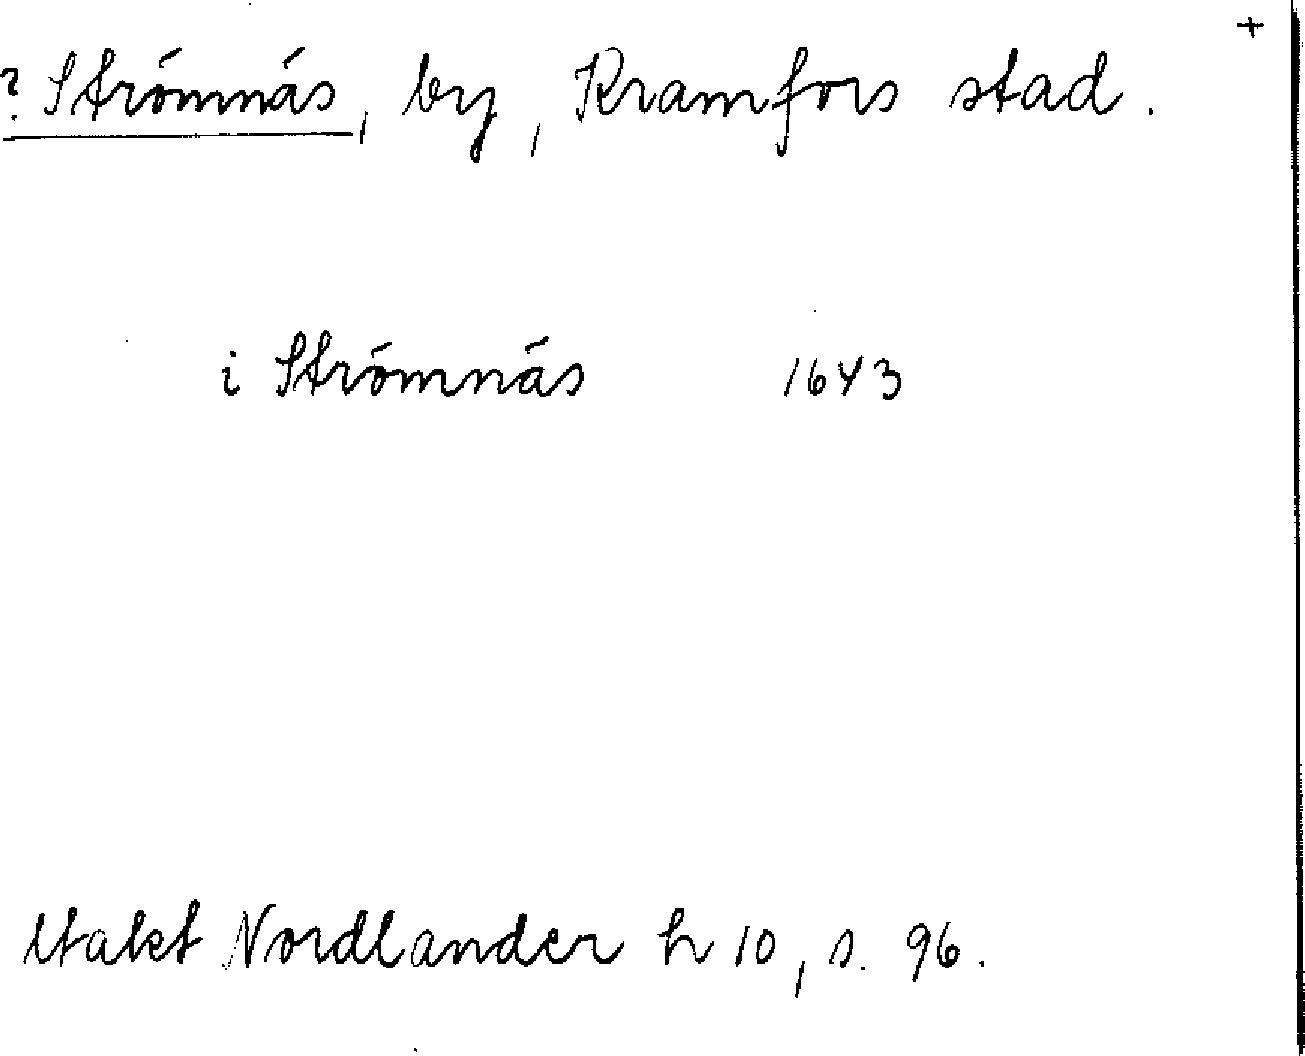 +
? Strömnäs, by, Kramfors stad.
i Strömnäs 1643
Utakt Nordlander h 10, s. 96.